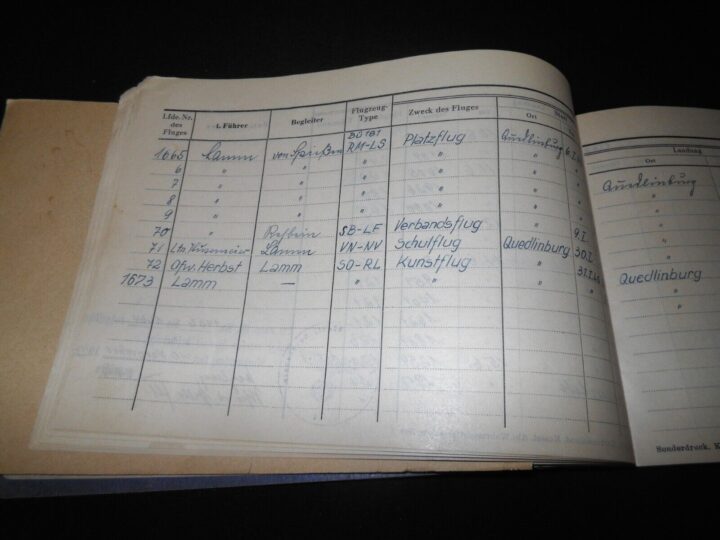 Lfde. Nr. des Fluges 1. Führer Begleiter Flugzeug-Type Zweck des Fluges Ort Landung Ort
BÜ 181
1665 Lamm RM-LS Platzflug Quedlinburg Quedlinburg
6 " " " " " "
7 " " " " " "
8 " " " " " "
9 " " " " " "
70 " SB-LF Verbandsflug " 9.I. "
71 Ltn. Lamm VN-NV Schulflug Quedlinburg 30.I. Quedlinburg
72 Ofw. Herbst Lamm SO-RL Kunstflug " "
1673 Lamm — " " "
Sonderdruck,